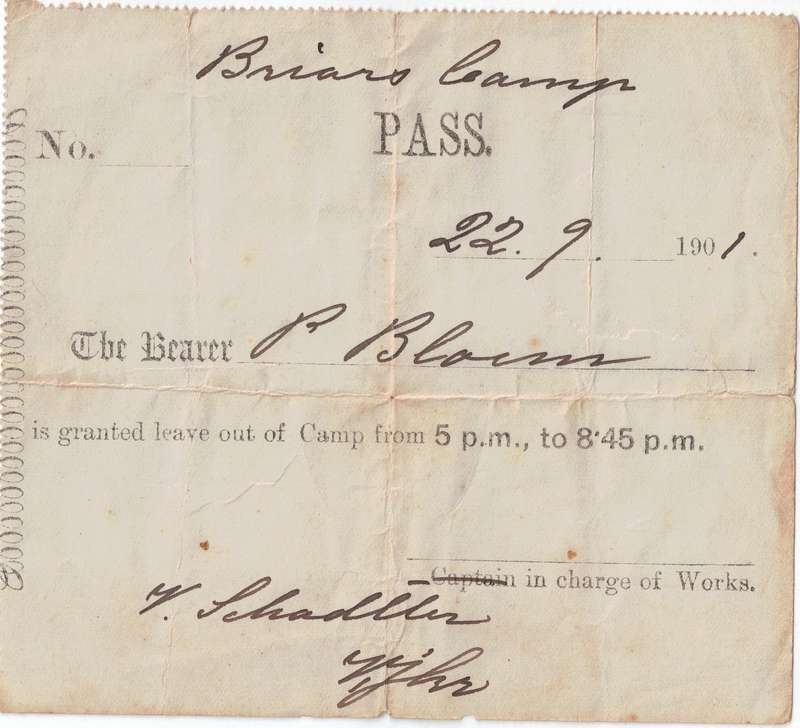 Briars Camp
No. PASS.
22. 9. 1901.
The Bearer P Bloem
is granted leave out of Camp from 5 p.m., to 8·45 p.m.
Captain in charge of Works.
V. Schadller